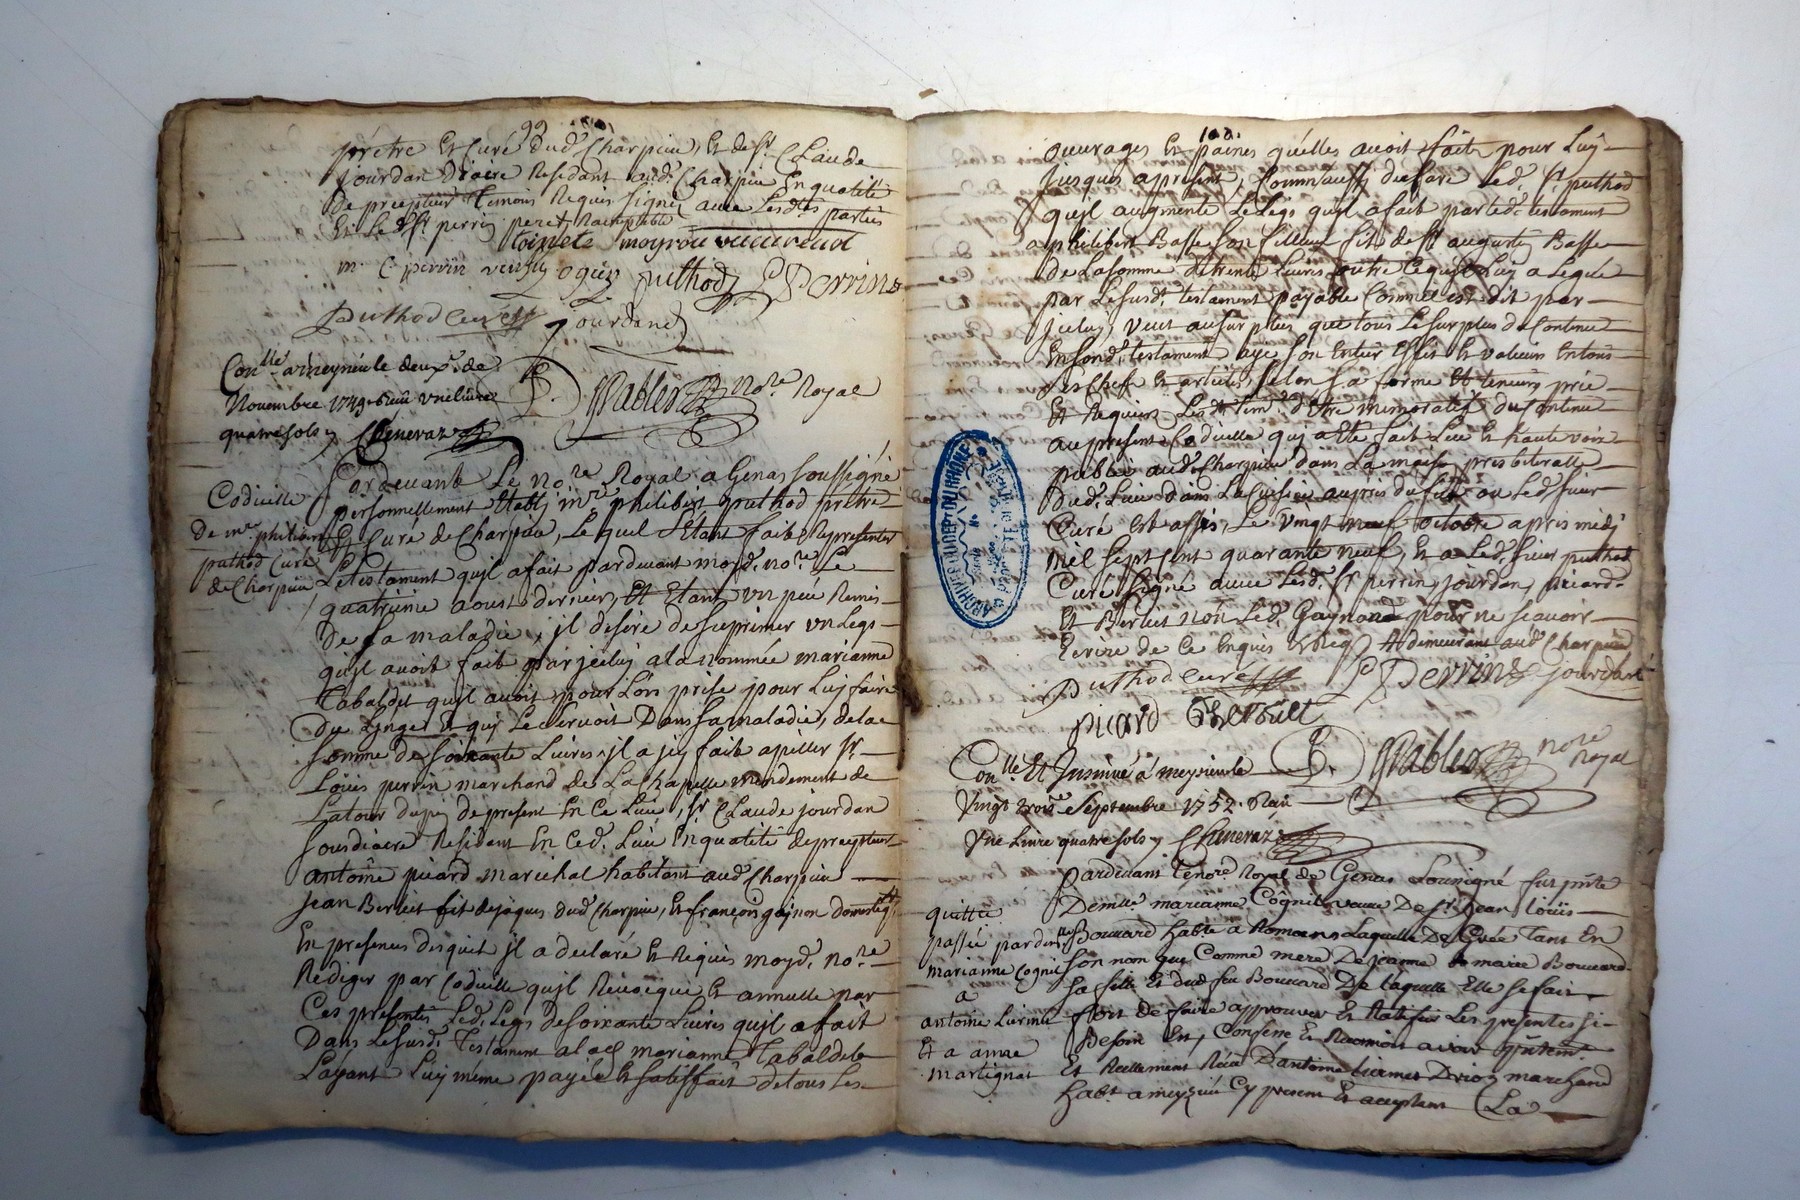 99
prêtre Et Curé dud. Charpieu, Et de Sr. Claude
Jourdan Diacre Residant aud. Charpieu En qualité
de precepteur temoins Requis Signé avec Lesdtes parties
Et Le dt Sr. perrin
moyrou
m. C perrin puthod P Perrin
Puthod curé Jourdand
Conlle a meyzieu le deux.e de
Novembre 1749. Reçu une livre
quatre sols Cheneraz
Pabler nore Royal
Pardevant Le nore Royal a Genas soussigné
Codicille
De mre philibert
puthod Curé
de Charpieu
personnellement Etably mre philibert puthod prêtre
Et Curé de Charpieu, Le quel S'Etant fait Representer
Le testament qu'jl a fait pardevant moyd. nore Le
quatrieme aoust dernier, Et Etant un peu Remis
De sa maladie, jl desire de suprimer un Legs
qu'jl avoit fait par jceluy a la nommée marianne
Tabaldet qu'jl avoit pour Lors prise pour Luy faire
Du Linge Et quj Le servoit Dans sa maladie, de la
somme de soixante Livres, jl a jcy fait apeller Sr.
Loüis perrin marchand de La Chapelle mandement de
Latour dupin de present En Ce Lieu, Sr. Claude jourdan
sousdiacre Residant En Ced. Lieu En qualité de precepteur
antoine picard marechal habitant aud. Charpieu
Jean Berliet fit de jâques dud. Charpieu, Et françois gaynon domestiq.
En presence desquels jl a declaré Et Requis moyd. nore
Rediger par Codicille qu'jl Revoque Et annulle par
Ces presentes Led. Legs de soixante Livres qu'jl a fait
Dans Lesusd. Testament a lad. marianne Tabaldet
L'ayant Luy même payée Et satisfait de tous Les
100.
ouvrages Et paines qu'elles avoit faite pour Luy
Jusques apresent, Comm'aussy declare Led. Sr. puthod
qu'jl augmente Le Legs qu'jl a fait par led. testament
a philibert Basse son filleul fils de Sr. augustin Basse
de La somme de trente Livres outre Ce qu'jl Luy a Legué
par Lesusd. testament payable Comme est dit par
jceluy, veut au surplus que tous Le surplus du Contenu
En sond. testament aye son Entier Effet Et valleur En tous
ses Chefs Et articles, selon sa forme Et teneur, prie
Et Requiers Lesd. tem. d'Etre memoratif du Contenu
au present Codicille quj a Eté fait Lue Et haute voix
publié aud. Charpieu dans La maison presbiteralle
dud. Lieu dans La Cuisine aupres du feu ou Led. sieur
Curé Est assis, Le vingt neuf octobre apres midj
mil sept cent quarante neuf, Et a Led. sieur puthod
Curé signé avec Lesd. Sr. perrin, jourdan, picard
Et Berliet non Led. Gaynon pour ne scavoir
Ecrire de Ce Enquis Et Req.
Puthod curé P Perrin Jourdand
picard J Berliet
Conlle Et Insinué a meyzieu le
Vingt trois.e Septembre 1752. Reçu
Une Livre quatre sols Cheneraz
Pabler nore
Royal
Pardevant Le nore Royal de Genas soussigné fut pnte
quittce
passée par dlle
marianne Cognil
a
antoine Liermet
Et a anne
martignat
Demlle marianne Cognil veuve De Sr. Jean Loüis
Bouvard habte a Romans Laquelle De Grée Tant En
son nom que Comme mere De jeanne marie Bouvard
sa fille Et dud. feu Bouvard De Laquelle Elle se fait
fort de faire approuver Et Ratifier Les presentes si
Besoin En, Confesse Et Reconnoit avoir pntem.
Et Reellement Reçu D'antoine Liermet Drion marchand
habt. a meyzieu Cy present Et acceptant La
ARCHIVES DU DEPT DU RHÔNE
PROPRIÉTÉ PUBLIQUE